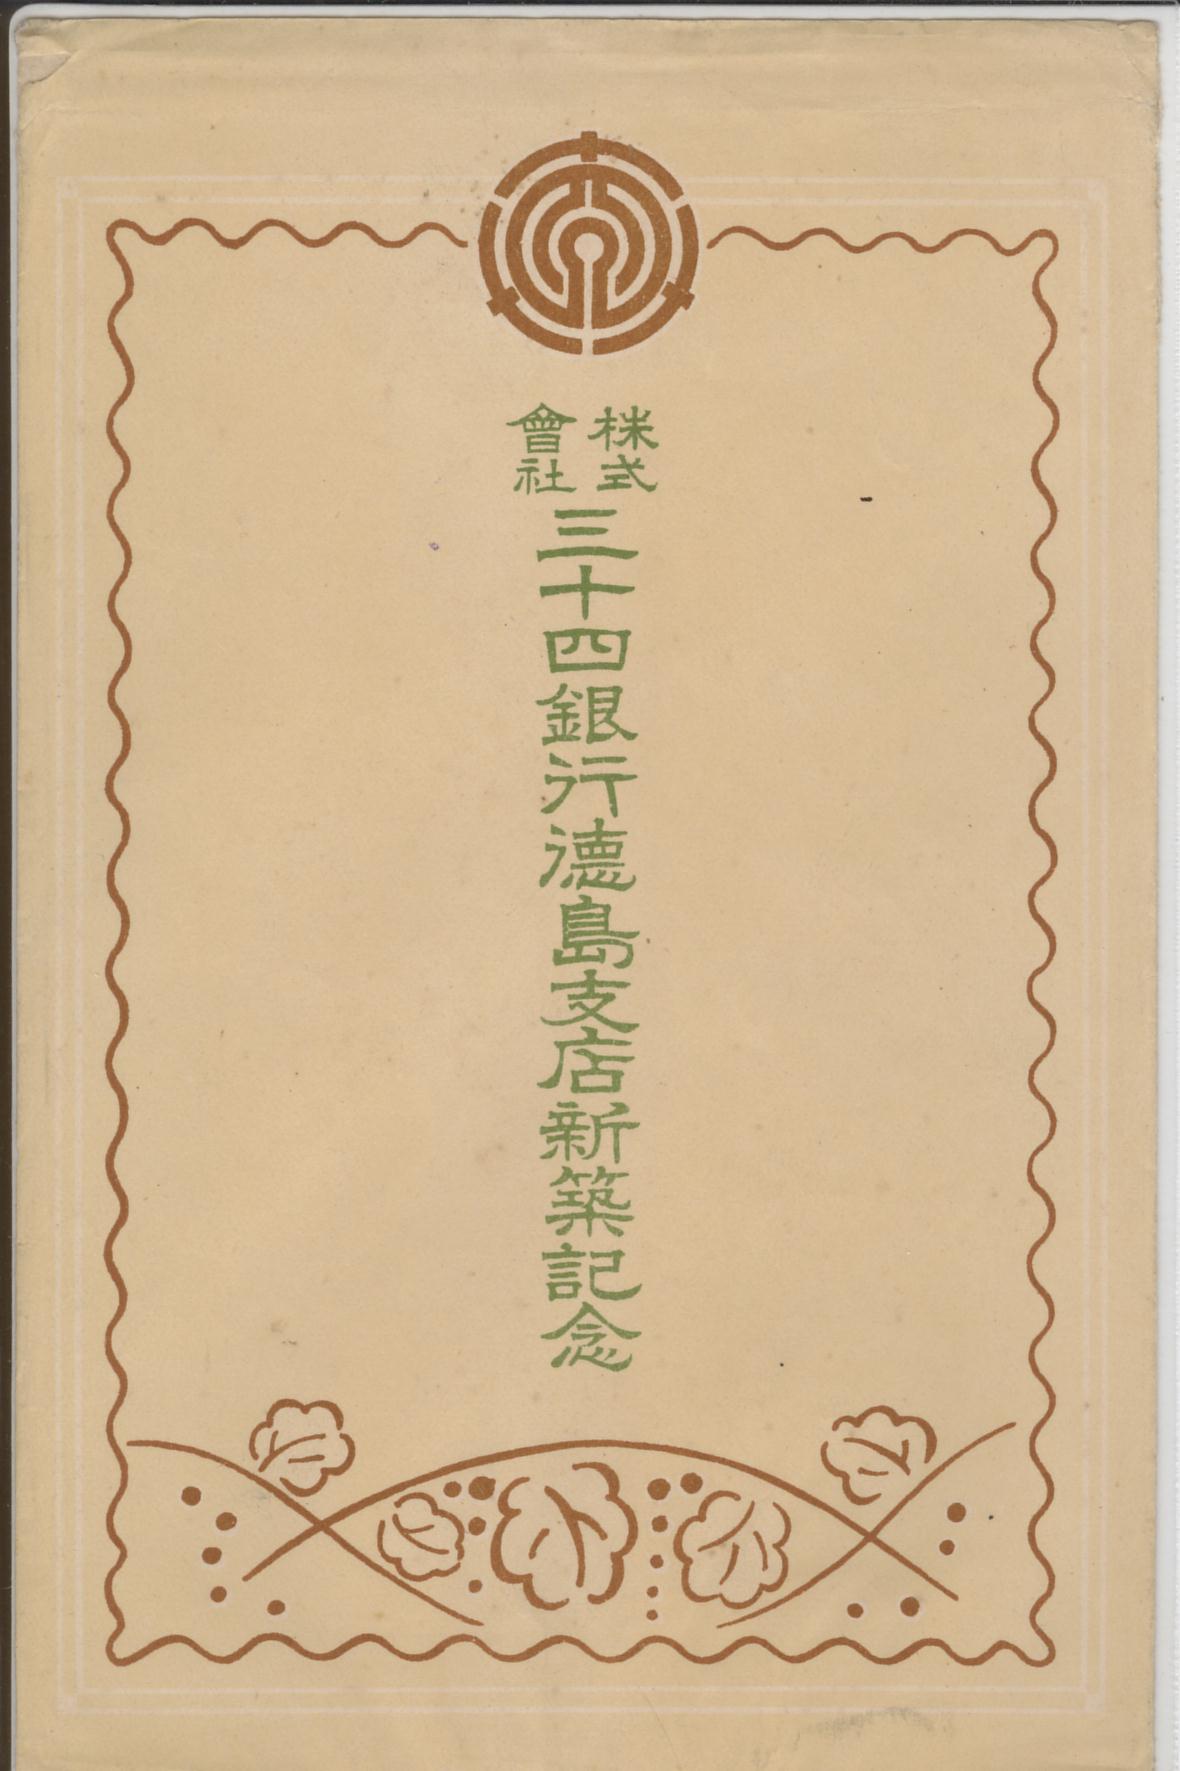 株式會社三十四銀行德島支店新築記念